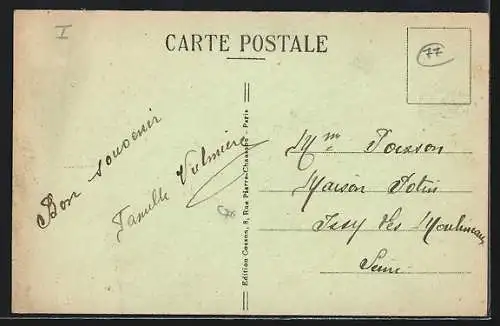 I
CARTE POSTALE
77
Bon souvenir
Famille Vulmiere
Edition Cosson, 8, Rue Pierre-Chausson - Paris
Mme Poisson
Maison Potin
Issy les Moulineaux
Seine